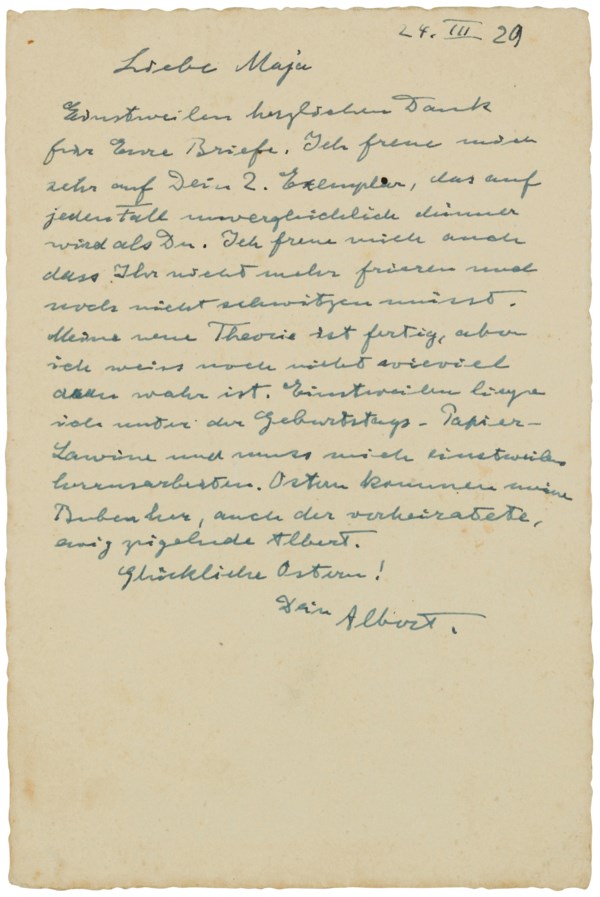 24. III 29
Liebe Maja
Einstweilen herzlichen Dank
für Eure Briefe. Ich freue mich
sehr auf Dein 2. Exemplar, das auf
jeden Fall unvergleichlich dünner
wird als Du. Ich freue mich auch
dass Ihr nicht mehr frieren und
noch nicht schwitzen müsst.
Meine neue Theorie ist fertig, aber
ich weiss noch nicht wieviel
dran wahr ist. Einstweilen liege
ich unter der Geburtstags-Papier-
Lawine und muss mich einstweilen
herausarbeiten. Ostern kommen meine
Buben her, auch der verheiratete,
ewig Albert.
Glückliche Ostern!
Dein Albert.